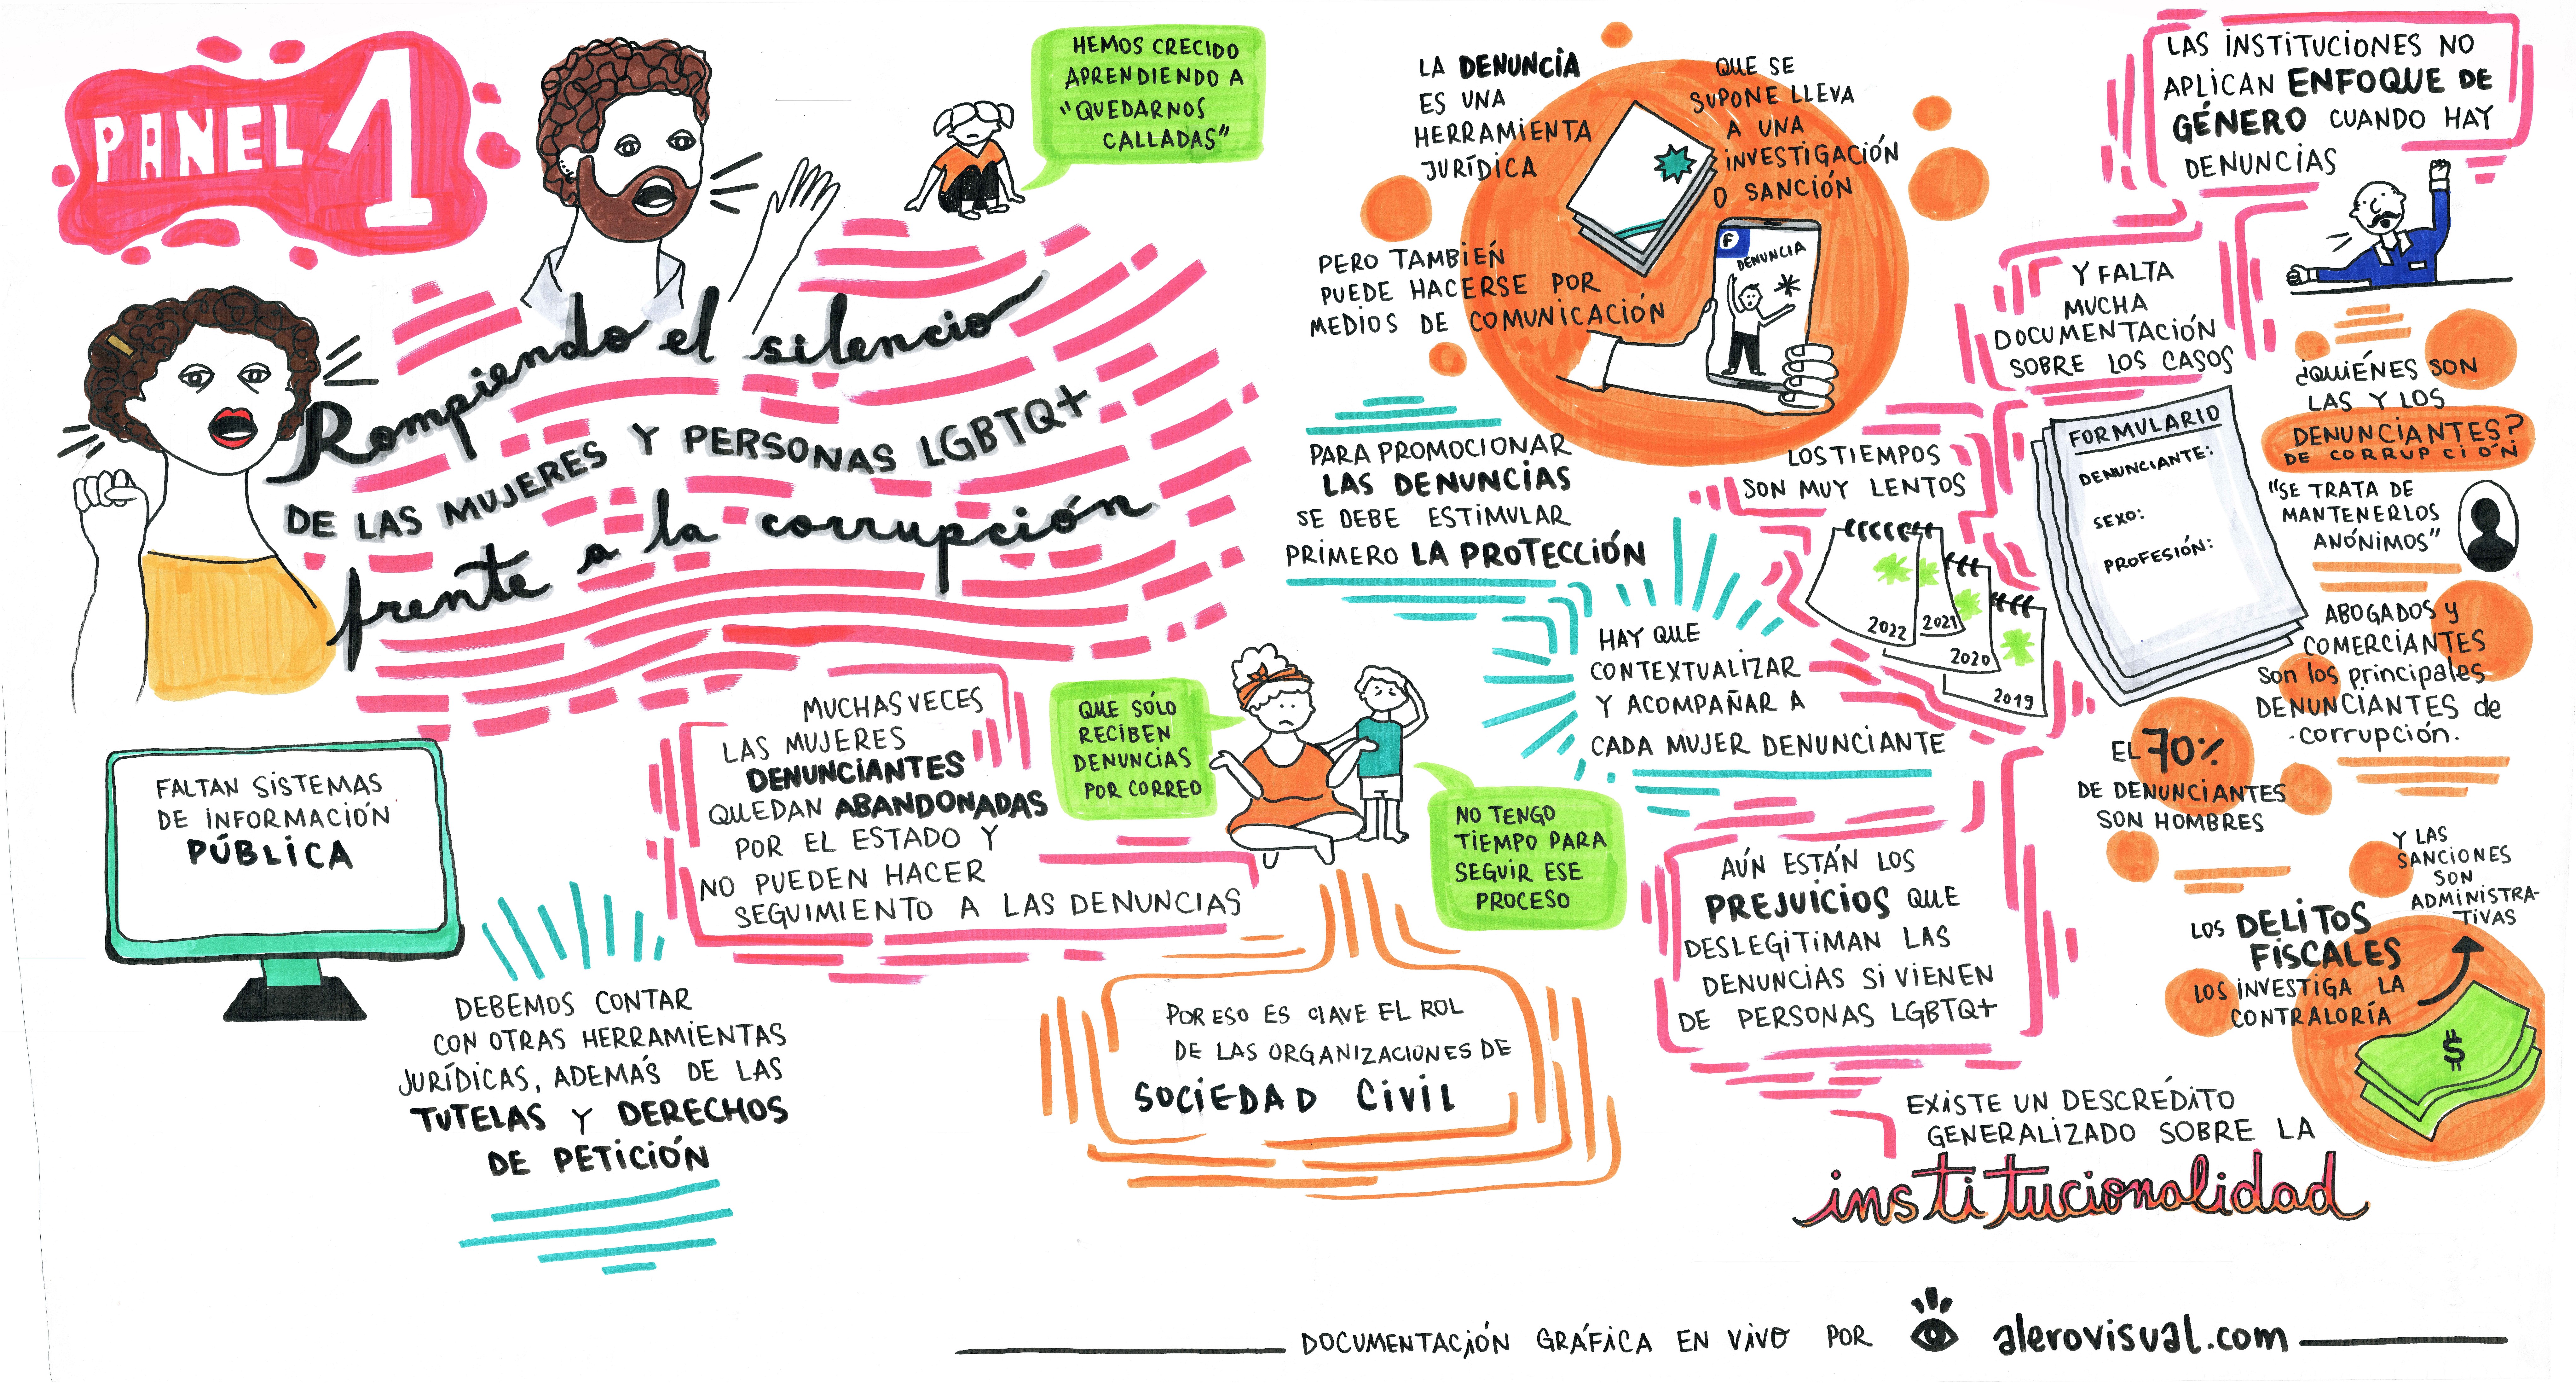 PANEL 1
Rompiendo el silencio
DE LAS MUJERES Y PERSONAS LGBTQ+
frente a la corrupción
HEMOS CRECIDO
APRENDIENDO A
"QUEDARNOS
CALLADAS"
FALTAN SISTEMAS
DE INFORMACIÓN
PÚBLICA
DEBEMOS CONTAR
CON OTRAS HERRAMIENTAS
JURÍDICAS, ADEMÁS DE LAS
TUTELAS Y DERECHOS
DE PETICIÓN
MUCHAS VECES
LAS MUJERES
DENUNCIANTES
QUEDAN ABANDONADAS
POR EL ESTADO Y
NO PUEDEN HACER
SEGUIMIENTO A LAS DENUNCIAS
QUE SÓLO
RECIBEN
DENUNCIAS
POR CORREO
NO TENGO
TIEMPO PARA
SEGUIR ESE
PROCESO
POR ESO ES CLAVE EL ROL
DE LAS ORGANIZACIONES DE
SOCIEDAD CIVIL
LA DENUNCIA
ES UNA
HERRAMIENTA
JURÍDICA
QUE SE
SUPONE LLEVA
A UNA
INVESTIGACIÓN
O SANCIÓN
PERO TAMBIÉN
PUEDE HACERSE POR
MEDIOS DE COMUNICACIÓN
F
DENUNCIA
PARA PROMOCIONAR
LAS DENUNCIAS
SE DEBE ESTIMULAR
PRIMERO LA PROTECCIÓN
HAY QUE
CONTEXTUALIZAR
Y ACOMPAÑAR A
CADA MUJER DENUNCIANTE
LAS INSTITUCIONES NO
APLICAN ENFOQUE DE
GÉNERO CUANDO HAY
DENUNCIAS
Y FALTA
MUCHA
DOCUMENTACIÓN
SOBRE LOS CASOS
FORMULARIO
DENUNCIANTE:
SEXO:
PROFESIÓN:
LOS TIEMPOS
SON MUY LENTOS
2022
2021
2020
2019
AÚN ESTÁN LOS
PREJUICIOS QUE
DESLEGITIMAN LAS
DENUNCIAS SI VIENEN
DE PERSONAS LGBTQ+
¿QUIÉNES SON
LAS Y LOS
DENUNCIANTES?
DE CORRUPCIÓN
"SE TRATA DE
MANTENERLOS
ANÓNIMOS"
ABOGADOS y
COMERCIANTES
Son los principales
DENUNCIANTES de
corrupción.
EL 70%
DE DENUNCIANTES
SON HOMBRES
LOS DELITOS
FISCALES
LOS INVESTIGA LA
CONTRALORÍA
Y LAS
SANCIONES
SON
ADMINISTRA-
TIVAS
$
EXISTE UN DESCRÉDITO
GENERALIZADO SOBRE LA
institucionalidad
DOCUMENTACIÓN GRÁFICA EN VIVO POR alerovisual.com